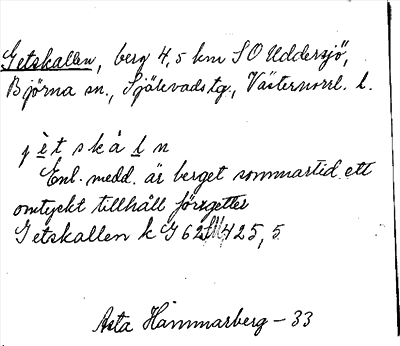 Getskallen, berg 4,5 km SO Uddersjö,
Björna sn., Själevads tg., Västernorrl. l.
j è t s k å l n
Enl. medd. är berget sommartid ett
omtyckt tillhåll för getter
Getskallen k G 62 425,5
Asta Hammarberg - 33